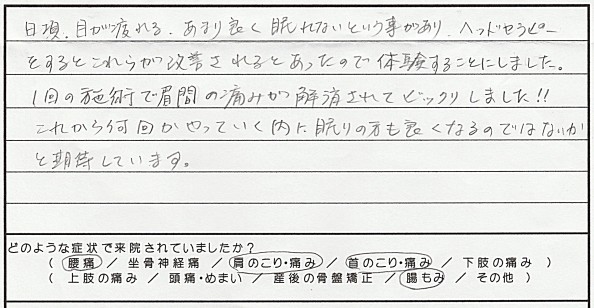 日頃、目が疲れる、あまり良く眠れないという事があり、ヘッドセラピー
をするとこれらが改善されるとあったので体験することにしました。
1回の施術で眉間の痛みが解消されてビックリしました!!
これから何回かやっていく内に眠りの方も良くなるのではないか
と期待しています。
どのような症状で来院されていましたか?
( 腰痛 / 坐骨神経痛 / 肩のこり・痛み / 首のこり・痛み / 下肢の痛み )
( 上肢の痛み / 頭痛・めまい / 産後の骨盤矯正 / 腸もみ / その他 )